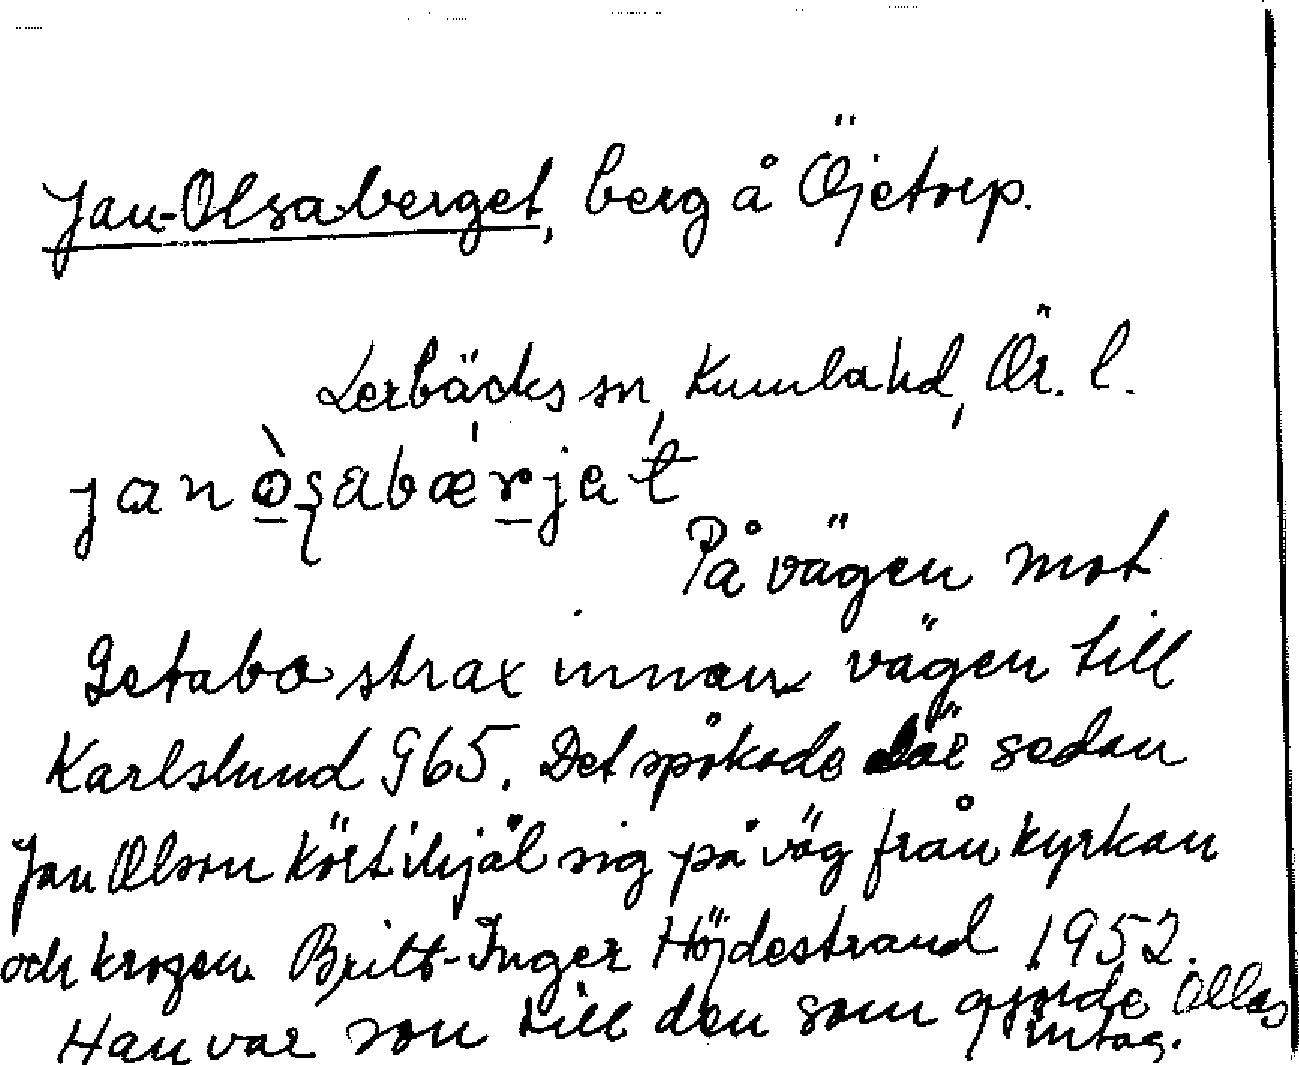 Jan-Olsaberget, berg å Öjetorp.
Lerbäcks sn, Kumla hd, Ör. l.
janòʂabærjet
På vägen mot
Getabo strax innan vägen till
Karlslund 965. Det spökade där sedan
Jan Olson kört ihjäl sig på väg från kyrkan
och krogen Britt-Inger Höjdestrand 1952.
Han var son till den som gjorde Ollas
intag.